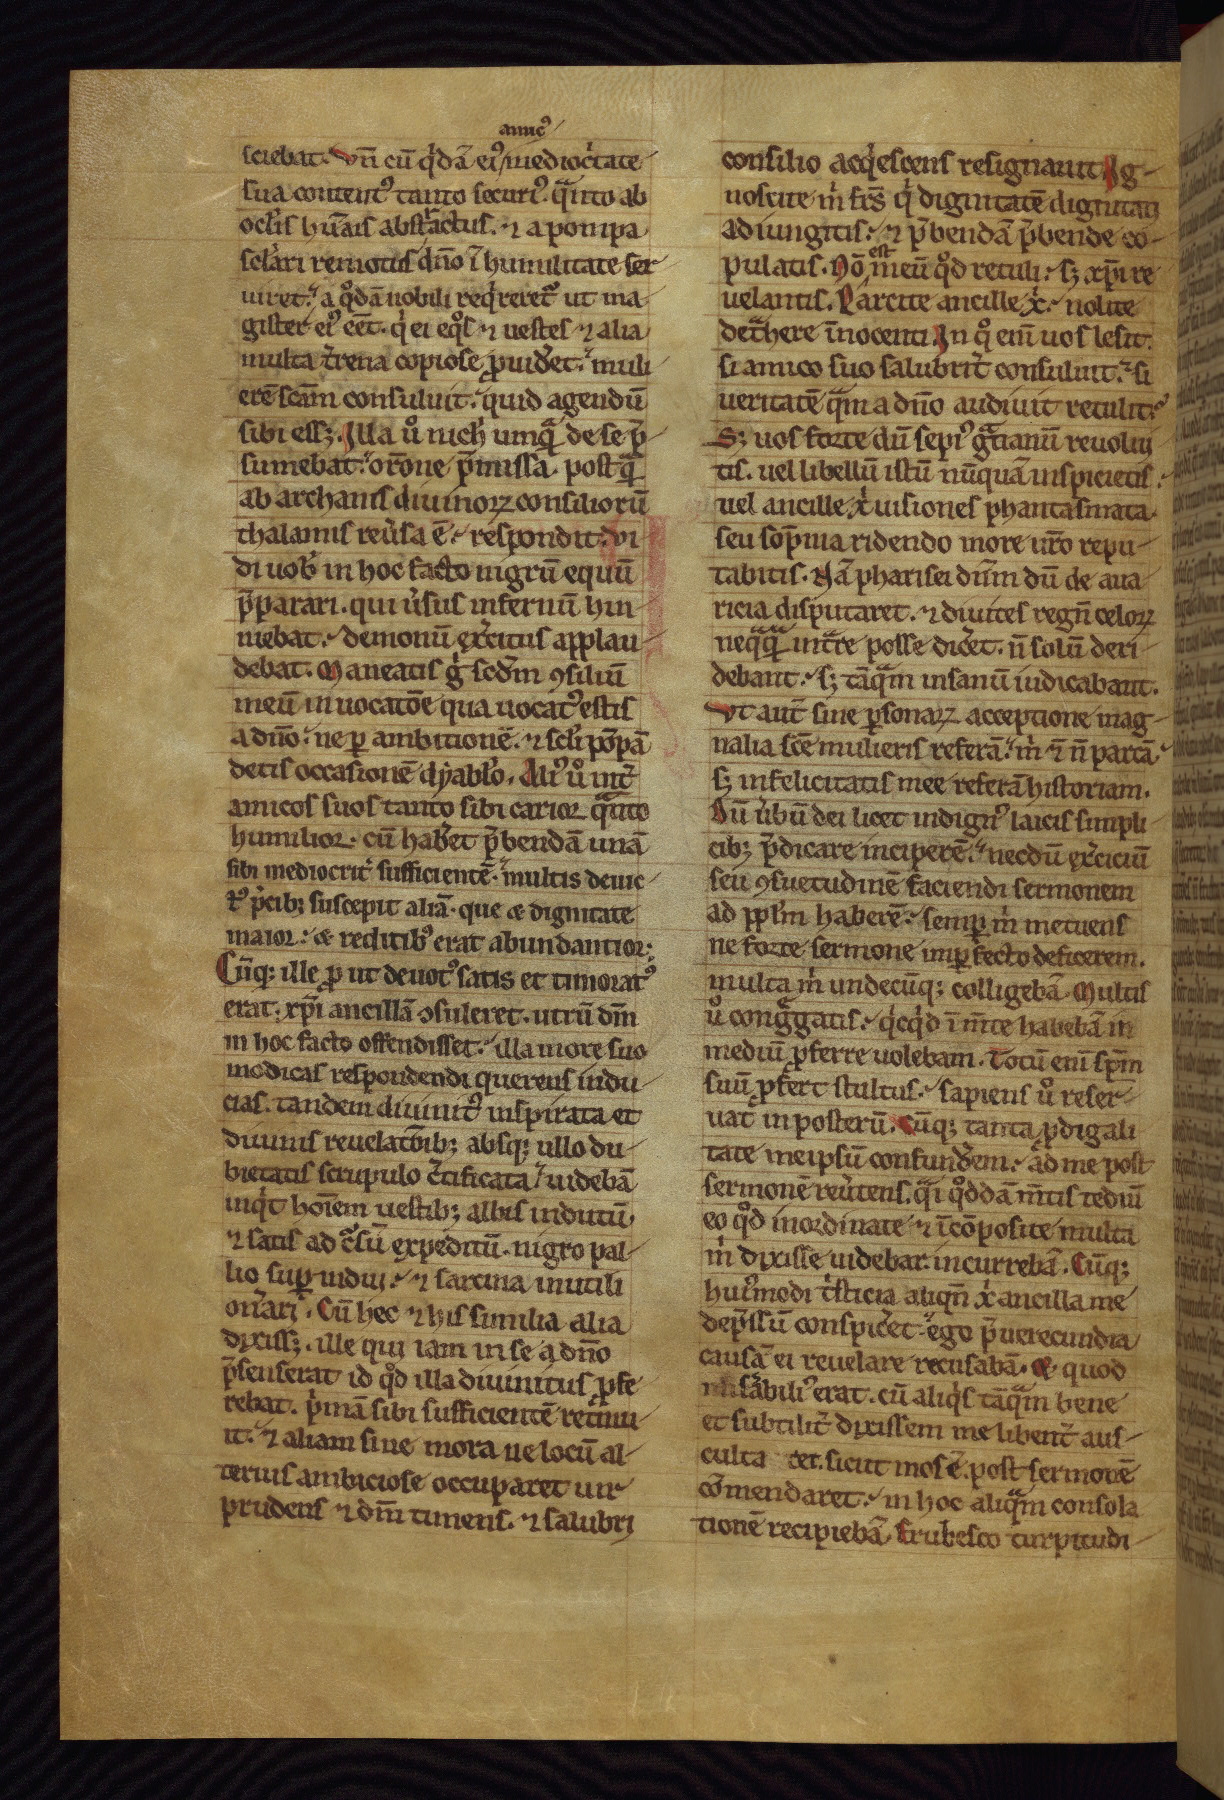 amicꝰ
sciebat. Vn̄ cū q'dā eiꝰ / mediocͥtate
sua contentꝰ tanto securiꝰ. qͣnto ab
oclis hūais abstͣctus. ⁊ a pompa
sclari remotus dn̄o ī humilitate ser
uiret. a qͦdā nobili req'reretᷣ ut ma-
gister eiꝰ eēt. q' ei eqͦs ⁊ uestes ⁊ alia
multa t'rena copiose ꝓuideret. muli
erē scām consuluit. quid agendū
sibi essꝫ. Illa uͦ nich' umqͣ de se p̄-
sumebat. or̄one p̄missa. postqͣ
ab archanis diuinoꝝ consilioꝝū
thalamis reu'sa ē. respondit. vi
di uob' in hoc facto nigrū equū
p̄parari. qui u'sus infernū hin
niebat. demonū ex'citus applau
debat. Maneatis g̊ scdm ꝯsiliū
meū in uocatōe qua uocatꝰ estis
a dn̄o. ne ꝑ ambitionē. ⁊ scli pōpā
detis occasionē dyablo. Aliꝰ uͦ int'
amicos suos tanto sibi carior qͣnto
humilior. cū hab'et p̄bendā unā
sibi mediocrit' sufficientē. multis deuic
tꝰ p'cibꝫ suscepit aliā. que & dignitate
maior. & reditibꝰ erat abundantior;
Cūqꝫ ille ꝓ ut deuotꝰ satis et timoratꝰ
erat. xp̄i ancillā ꝯsuleret. utrū dm̄
in hoc facto offendisset. illa more suo
modicas respondendi querens indu-
cias. tandem diuinitꝰ inspirata et
diuinis reuelatōibꝫ absqꝫ ullo du-
bietatis scrupulo c'tificata. uidebā
inq't hoīem uestibꝫ albis indutū
⁊ satis ad c'sū expeditū. nigro pal-
lio suꝑ indui. ⁊ sarcina inutili
on'ari. Cū hec ⁊ his similia alia
dixissꝫ. ille qui iam in se a dn̄o
p̄senserat id qͦd illa diuinitus ꝓfe
rebat. p'mā sibi sufficientē retinu-
it. ⁊ aliam sine mora ne locū al-
terius ambiciose occuparet uir
prudens ⁊ dm̄ timens. ⁊ salubri
consilio acq'escens resignauit. Ig-
noscite m' frēs q' dignitatē dignitati
adiungitis. ⁊ p̄bendā p̄bende co-
pulatis. Nō est meū qͦd retuli. sꝫ xp̄i re
uelantis. Parcite ancille x'. nolite
det'here īnocenti. In qͦ eni uos lesit.
si amico suo salubrit' consuluit. si
ueritatē qͣm a dn̄o audiuit retulit?
Sꝫ uos forte dū sepiꝰ gͣtianū reuolui
tis. uel libellū istū nūquā inspicietis.
uel ancille x' uisiones phantasmata
seu sōpnia ridendo more ur̄o repu-
tabitis. Nā pharisei dnm dū de aua
ricia disputaret. ⁊ diuites regn̄ celoꝝ
neqͣqͣ int͛re posse dic'et. n̄ solū deri
debant. sꝫ tāqͣm insanū iudicabant.
Vt aut̄ sine ꝑsonaꝝ acceptione mag-
nalia sc̄e mulieris referā. m' ⁊ n̄ parcā.
sꝫ infelicitatis mee referā historiam.
Dū u'bū dei licet indignꝰ laicis simpli
cibꝫ p̄dicare inciperē. necdū ex'ciciū
seu ꝯsuetudinē faciendi sermonem
ad pplm haberē. semꝑ m' metuens
ne forte sermone imꝑfecto deficerem.
multa m' undecūqꝫ colligebā. Multis
uͦ congͣgatis. q'cq'd ī mte habebā in
mediū ꝓferre uolebam. Totū eni sp̄m
suū ꝓfert stultus. sapiens uͦ reser-
uat in posterū. Cūqꝫ tanta ꝓdigali
tate meipsū confund'em. ad me post
sermonē reu'tens. qͣi qͦddā mtis tediū
eo qͦd inordinate ⁊ īcōposite multa
m' dixisse uidebar. incurrebā. Cūqꝫ
huiꝰmodi t'sticia aliqn̄ x' ancilla me
dep̄ssū conspic'et. ego p̄ uerecundia
causā ei reuelare recusabā. & quod
mis'abiliꝰ erat. cū aliq's tāqͣm bene
et subtilit' dixissem me libent' aus-
culta tet. sicut mos ē. post sermonē
cōmendaret. in hoc aliqͣm consola
tionē recipiebā. Erubesco turpitudi-